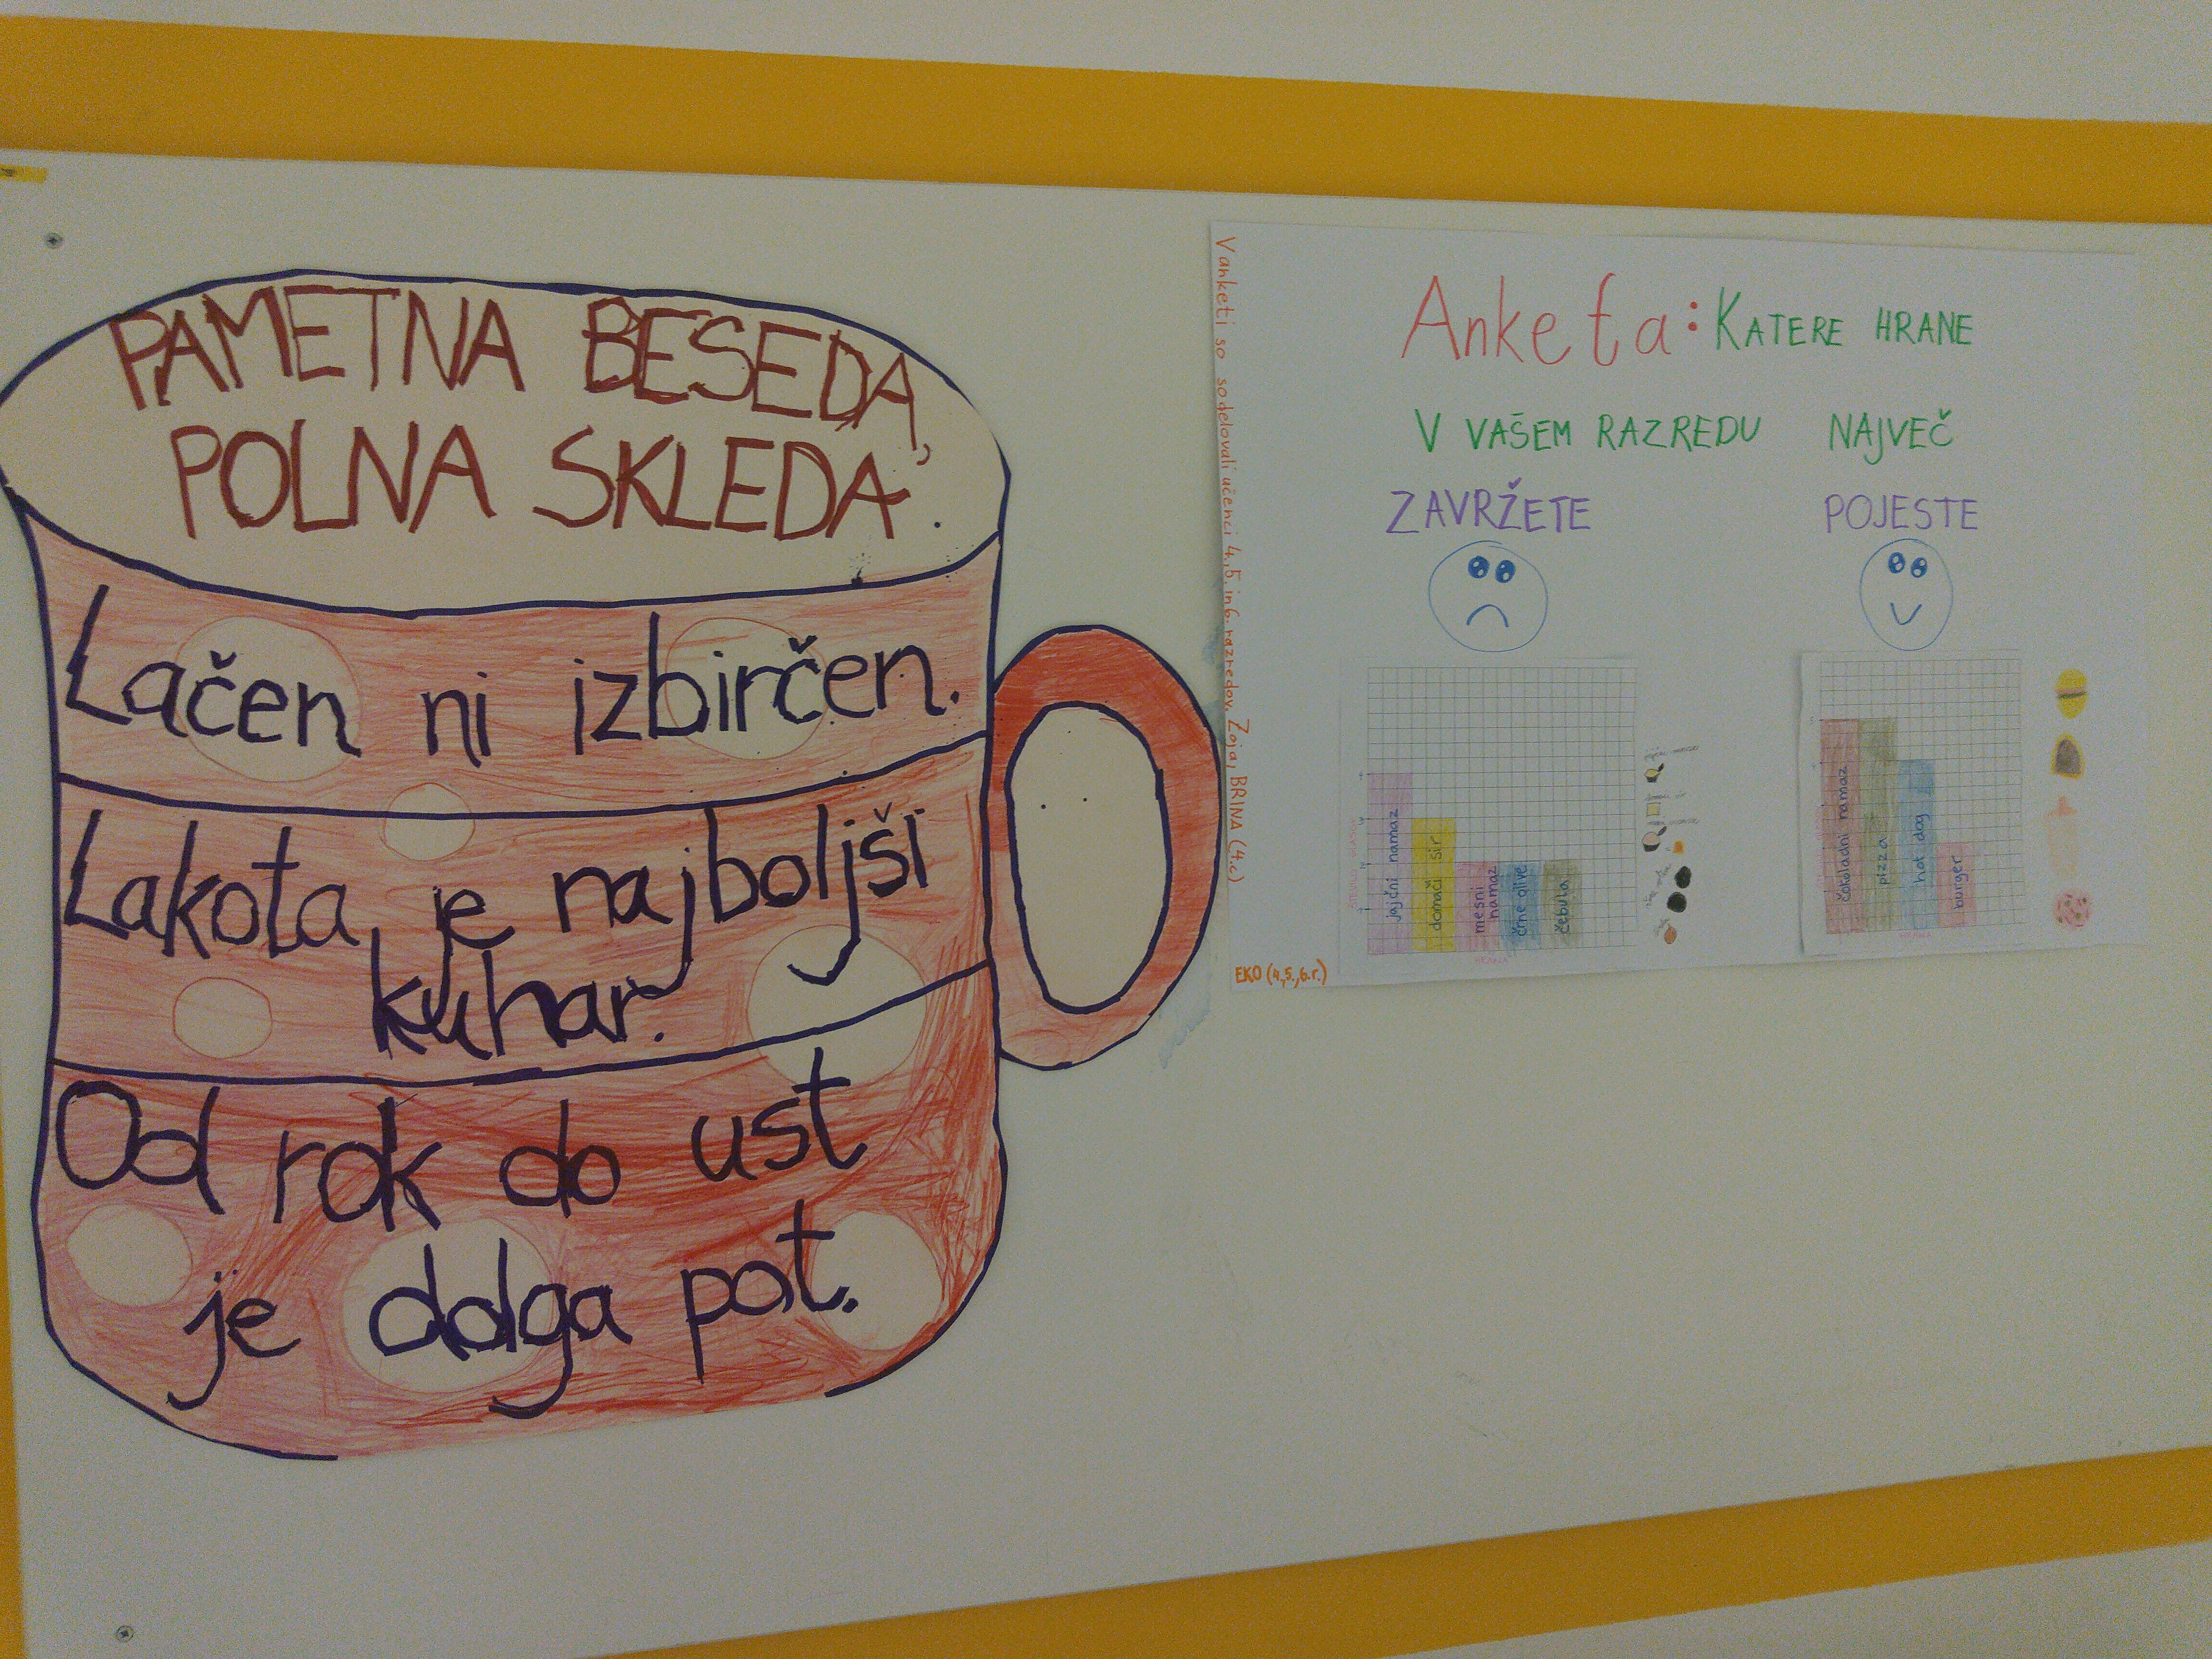 PAMETNA BESEDA,
POLNA SKLEDA.
Lačen ni izbirčen.
Lakota je najboljši
kuhar.
Od rok do ust
je dolga pot.
V anketi so sodelovali učenci 4., 5. in 6. razredov. Zoja, BRINA (4.c)
Anketa: KATERE HRANE
V VAŠEM RAZREDU NAJVEČ
ZAVRŽETE POJESTE
jajčni namaz
domači sir
mesni
namaz
črne olive
čebula
HRANA
čokoladni namaz
pizza
hot dog
burger
EKO (4.,5.,6.r.)